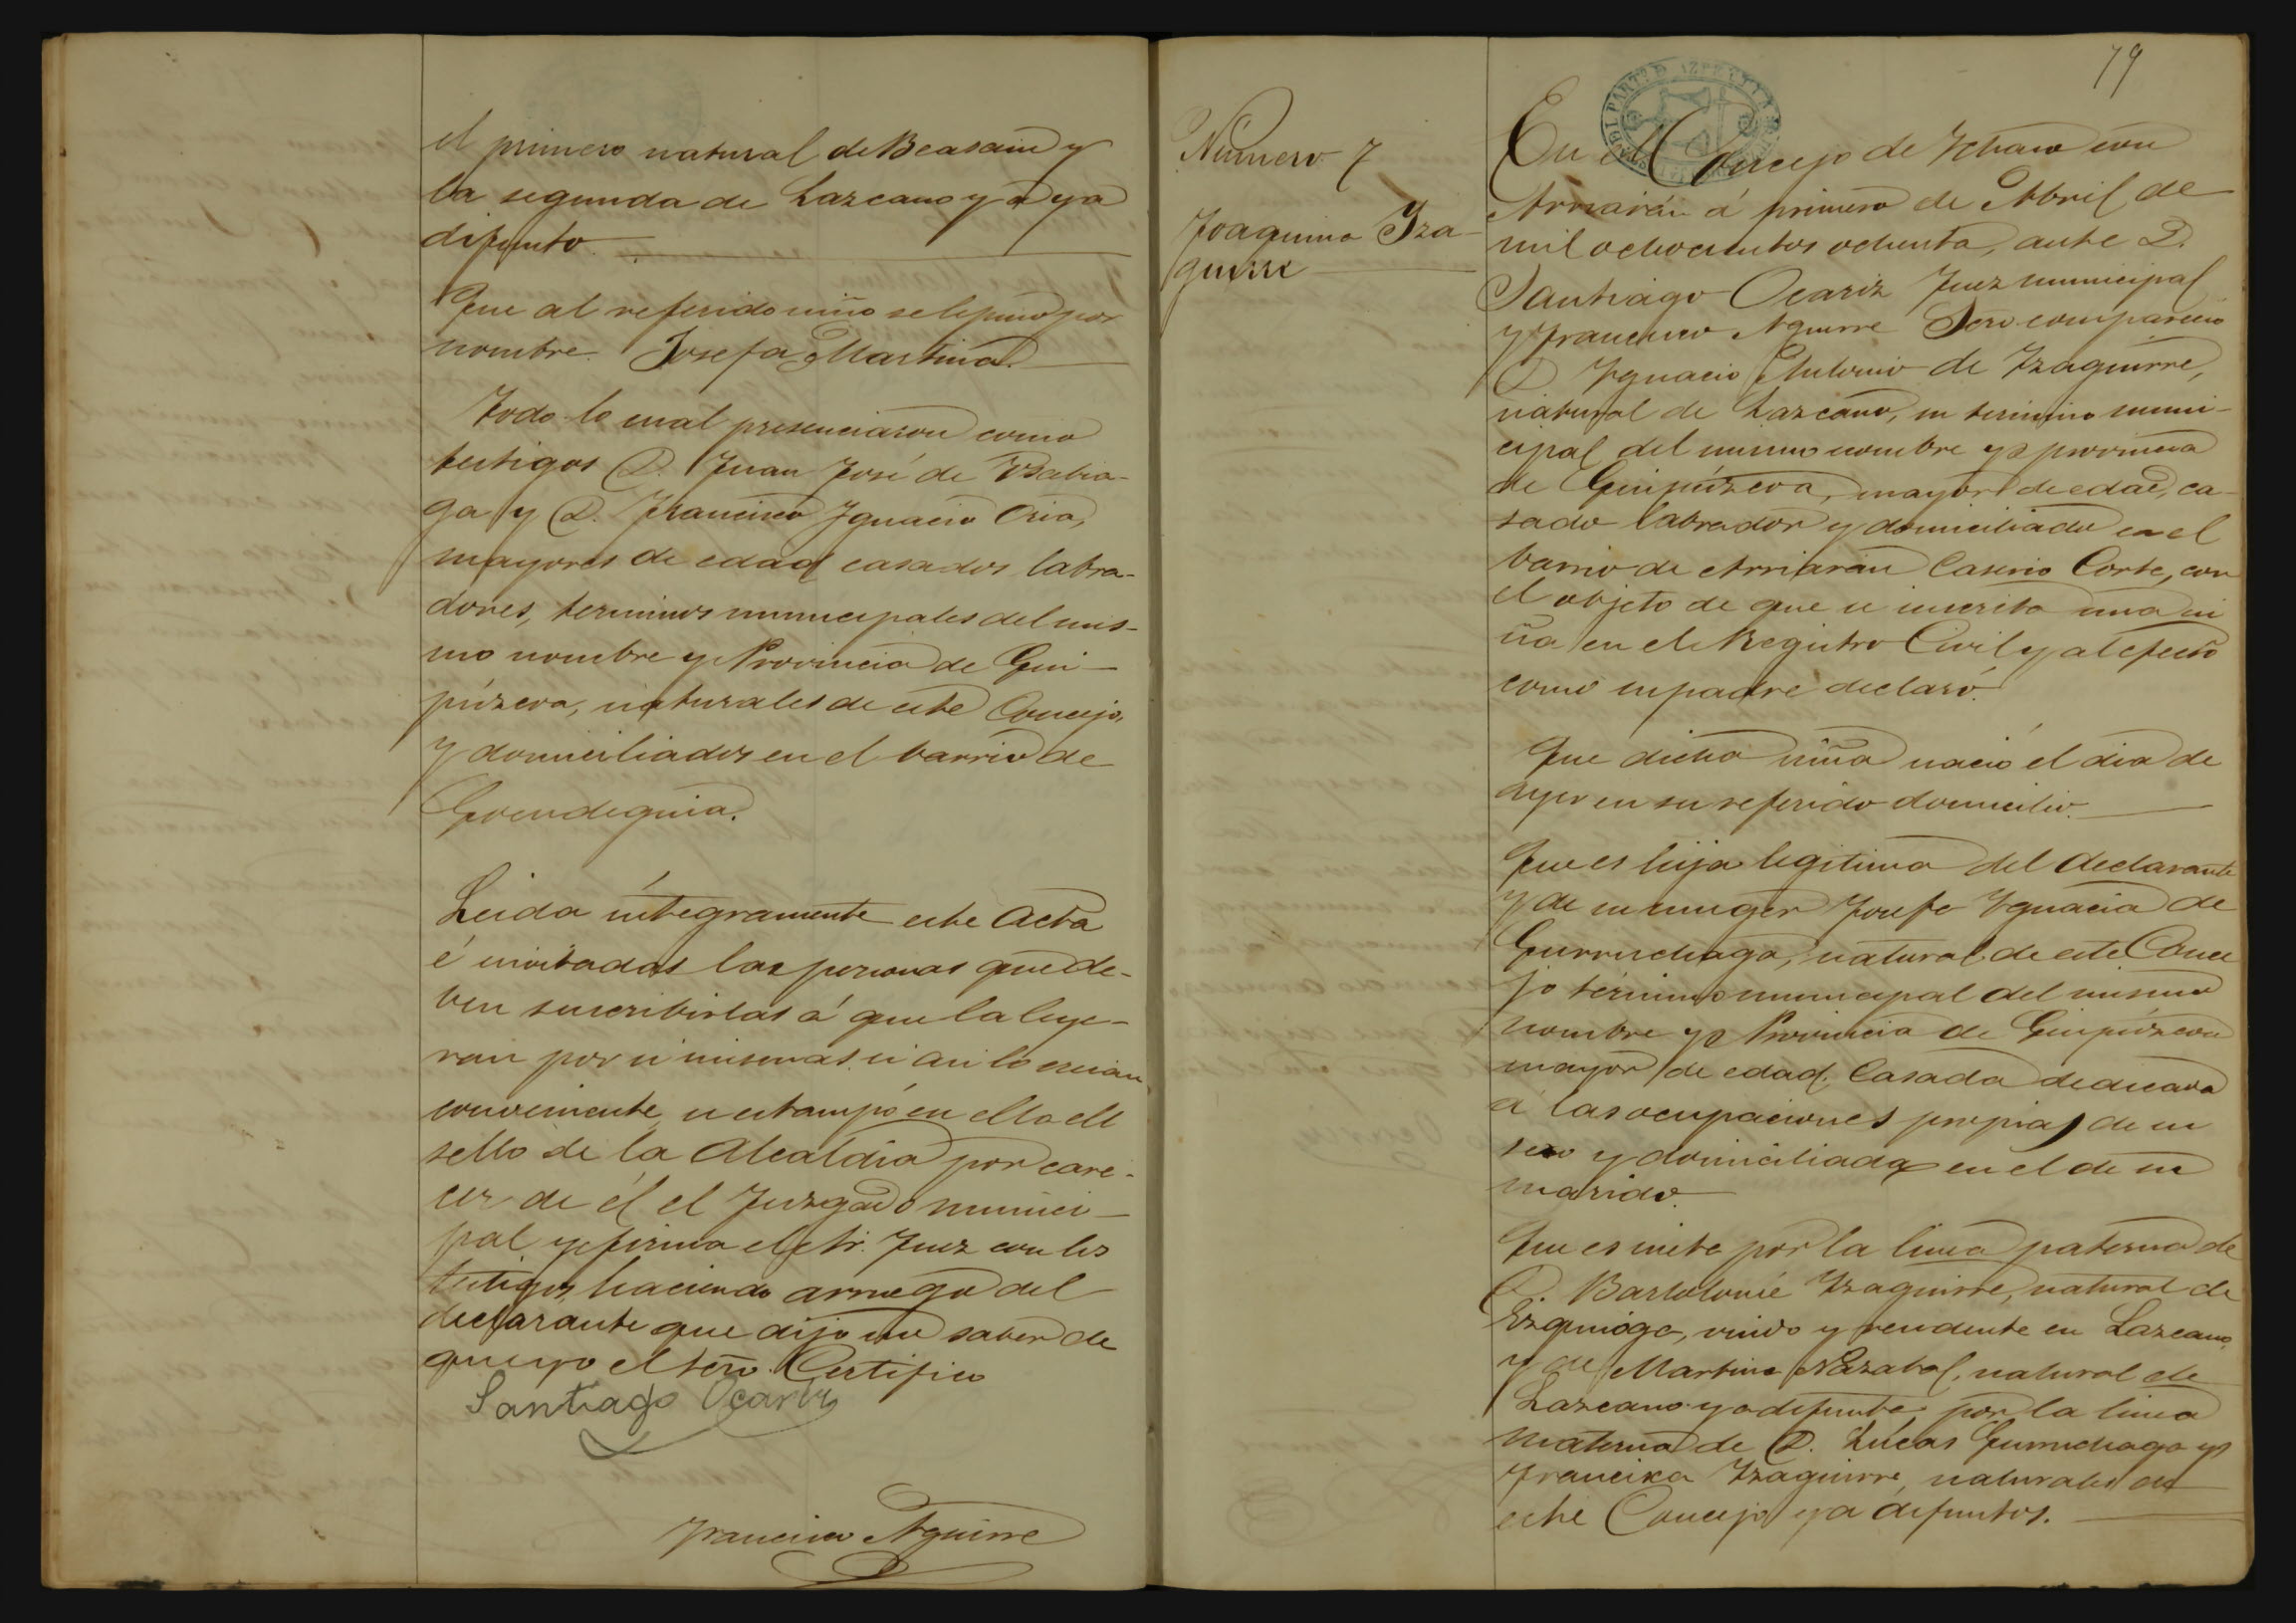 el primero natural de Beasain y
la segunda de Lazcano y a ya
difunto.
Que al referido niño se le puso por
nombre Josefa Martina.
Todo lo cual presenciaron como
testigos D. Juan José de
ga y D. Francisco Ignacio Oria,
mayores de edad casados labra-
dores, terminos municipales del mis-
mo nombre y Provincia de Gui-
púzcoa, naturales de este Concejo,
y domiciliados en el barrio de
Goendeguia.
Leida íntegramente este Acta
é invitadas las personas que de-
ben suscribirlas á que la leye-
ran por si mismas si asi lo creian
conveniente, se estampó en ella el
sello de la Alcaldia por care-
cer de él el Juzgado munici-
pal y firma el Sr. Juez con los
testigos, haciendo arruego del
declarante que dijo no saber de
que yo el Scrio. Certifico
Santiago Ocariz
Francisco Aguirre
79
Numero 7
Joaquina Iza
guirre
En el Concejo de Ichaso con
Arriarán á primero de Abril de
mil ochocientos ochenta, ante D.
Santiago Ocariz Juez municipal
y Francisco Aguirre Scrio. compareció
D. Ygnacio Antonio de Yzaguirre,
natural de Lazcano, su termino muni-
cipal del mismo nombre y provincia
de Guipúzcoa, mayor de edad, ca-
sado labrador y domiciliado en el
barrio de Arriarán Caserio Corte, con
el objeto de que se inscriba una ni
ña en el Registro Civil y al efecto
como su padre declaró.
Que dicha niña nació el dia de
ayer en su referido domicilio.
Que es hija legitima del declarante
y de su muger Josefa Ygnacia de
Gurruchaga, natural de este Conce
jo término municipal del mismo
nombre y Provincia de Guipúzcoa
mayor de edad. Casada dedicada
á las ocupaciones propias de su
sexo y domiciliada en el de su
marido.
Que es nieta por la linea paterna de
D. Bartolomé Yzaguirre, natural de
Ezquioga, viudo y residente en Lazcano,
y de Martina Nazabal, natural de
Lazcano ya difunta, por la linea
materna de D. Lucas Gurruchaga y
Francisca Yzaguirre, naturales de
este Concejo ya difuntos.